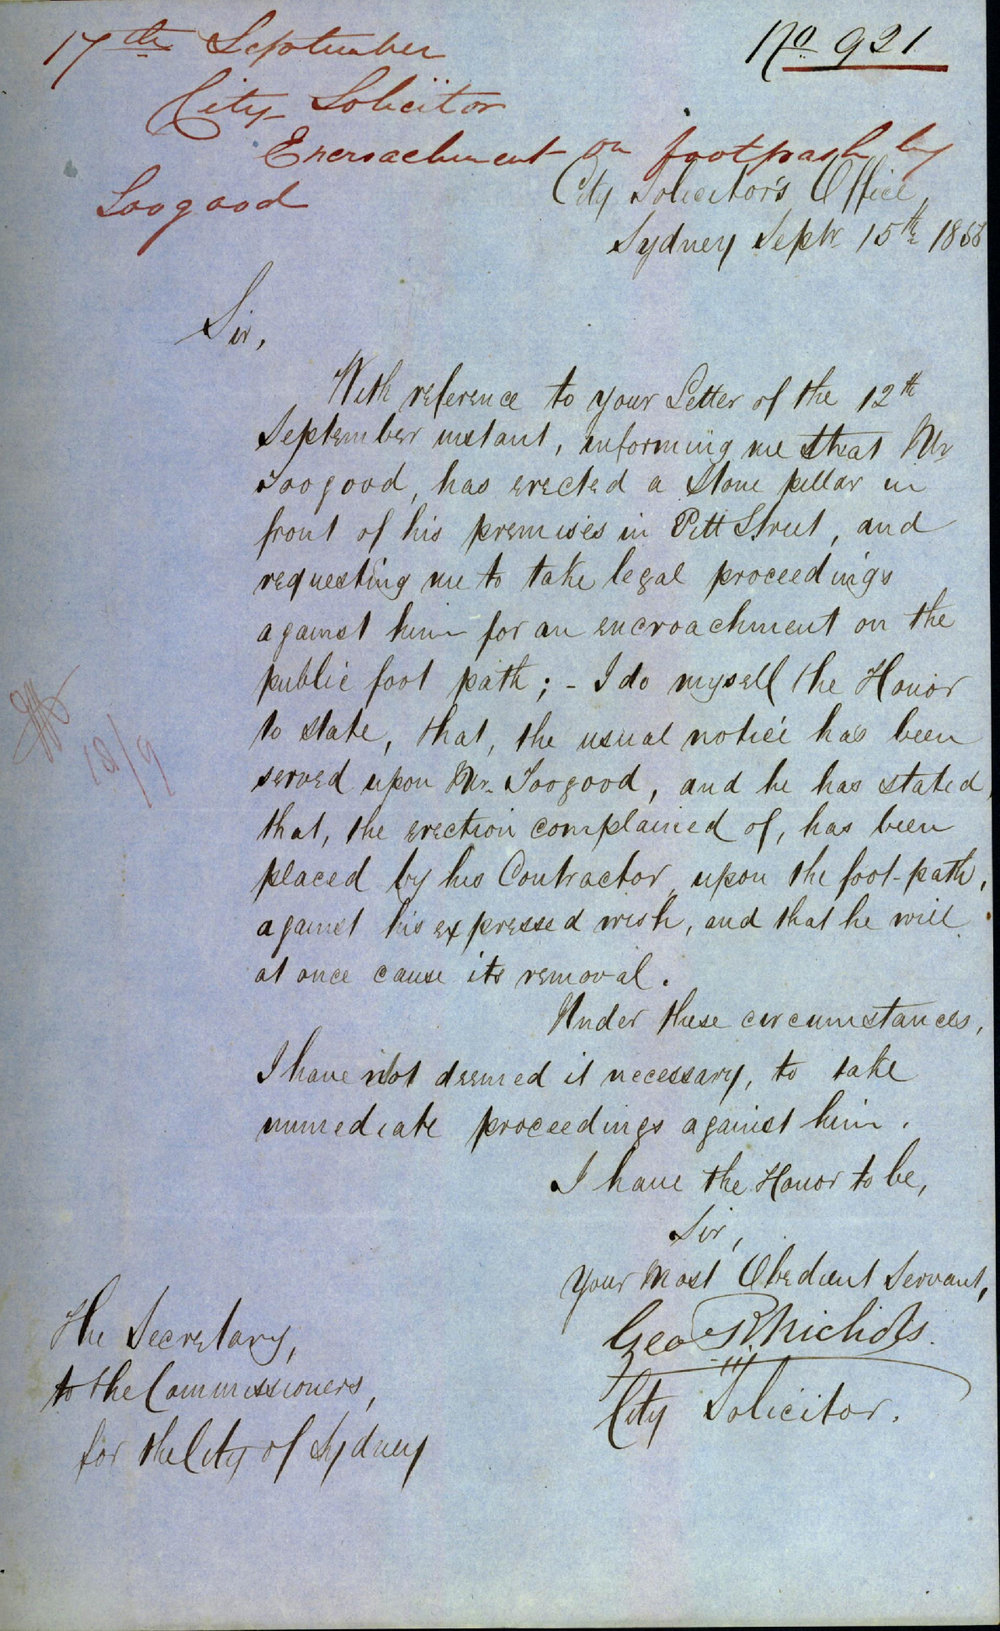 17th September
No 921
City Solicitor
Encroachment on footpath by
Toogood
City Solicitor's Office,
Sydney Septr 15th
Sir,
With reference to your Letter of the 12th
September instant, informing me that Mr
Toogood, has erected a Stone pillar in
front of his premises in Pitt Street, and
requesting me to take legal proceedings
against him for an encroachment on the
public foot path; - I do myself the Honor
to state, that, the usual notice has been
served upon Mr. Toogood, and he has stated,
that, the erection complained of, has been
placed by his Contractor, upon the foot-path,
against his expressed wish, and that he will
at once cause its removal.
Under these circumstances,
I have not deemed it necessary, to take
immediate proceedings against him.
I have the Honor to be,
Sir,
Your Most Obedient Servant,
Geo R Nichols.
City Solicitor.
The Secretary,
to the Commissioners,
for the City of Sydney
18/9